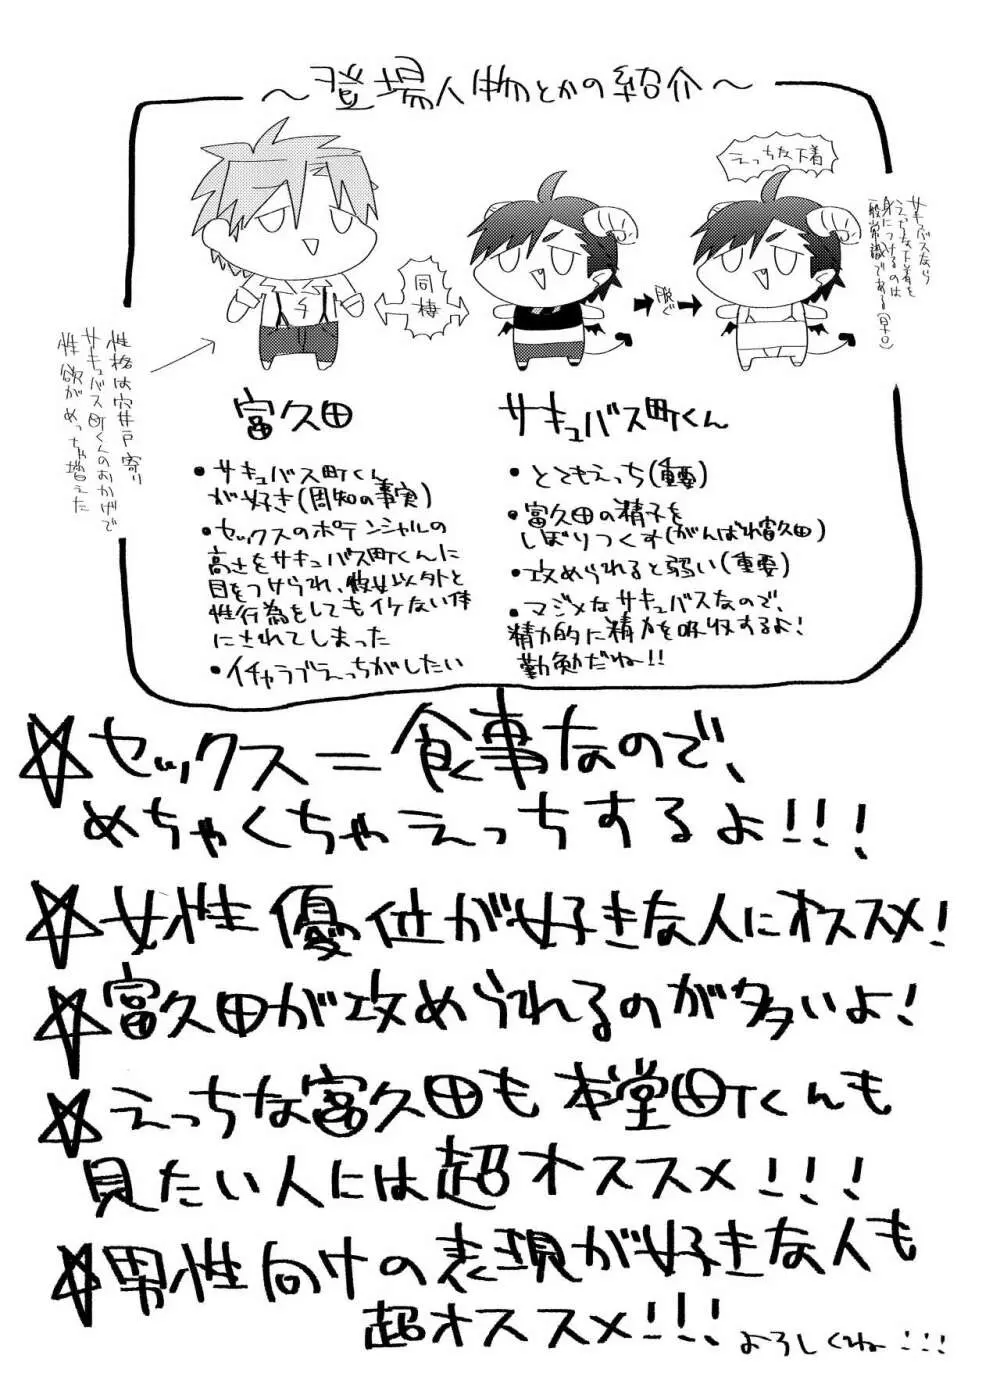 ～登場人物とかの紹介～
えっちな下着
サキュバスなら
えっちな下着を
身につけるのは
一般常識である(早口)
同棲
脱ぐ
性格は穴井戸寄り
サキュバス町くんのおかげで
性欲がめっちゃ増えた
富久田
・サキュバス町くん
が好き(周知の事実)
・セックスのポテンシャルの
高さをサキュバス町くんに
目をつけられ、彼女以外と
性行為をしてもイケない体
にされてしまった
・イチャラブえっちがしたい
サキュバス町くん
・とてもえっち(重要)
・富久田の精子を
しぼりつくす(がんばれ富久田)
・攻められると弱い(重要)
・マジメなサキュバスなので、
精力的に精力を吸収するよ!
勤勉だね～!!
☆セックス=食事なので、
めちゃくちゃえっちするよ!!!
☆女性優位が好きな人にオススメ!
☆富久田が攻められるのが多いよ!
☆えっちな富久田も本堂町くんも
見たい人には超オススメ!!!
☆男性向けの表現が好きな人も
超オススメ!!!よろしくね～!!!